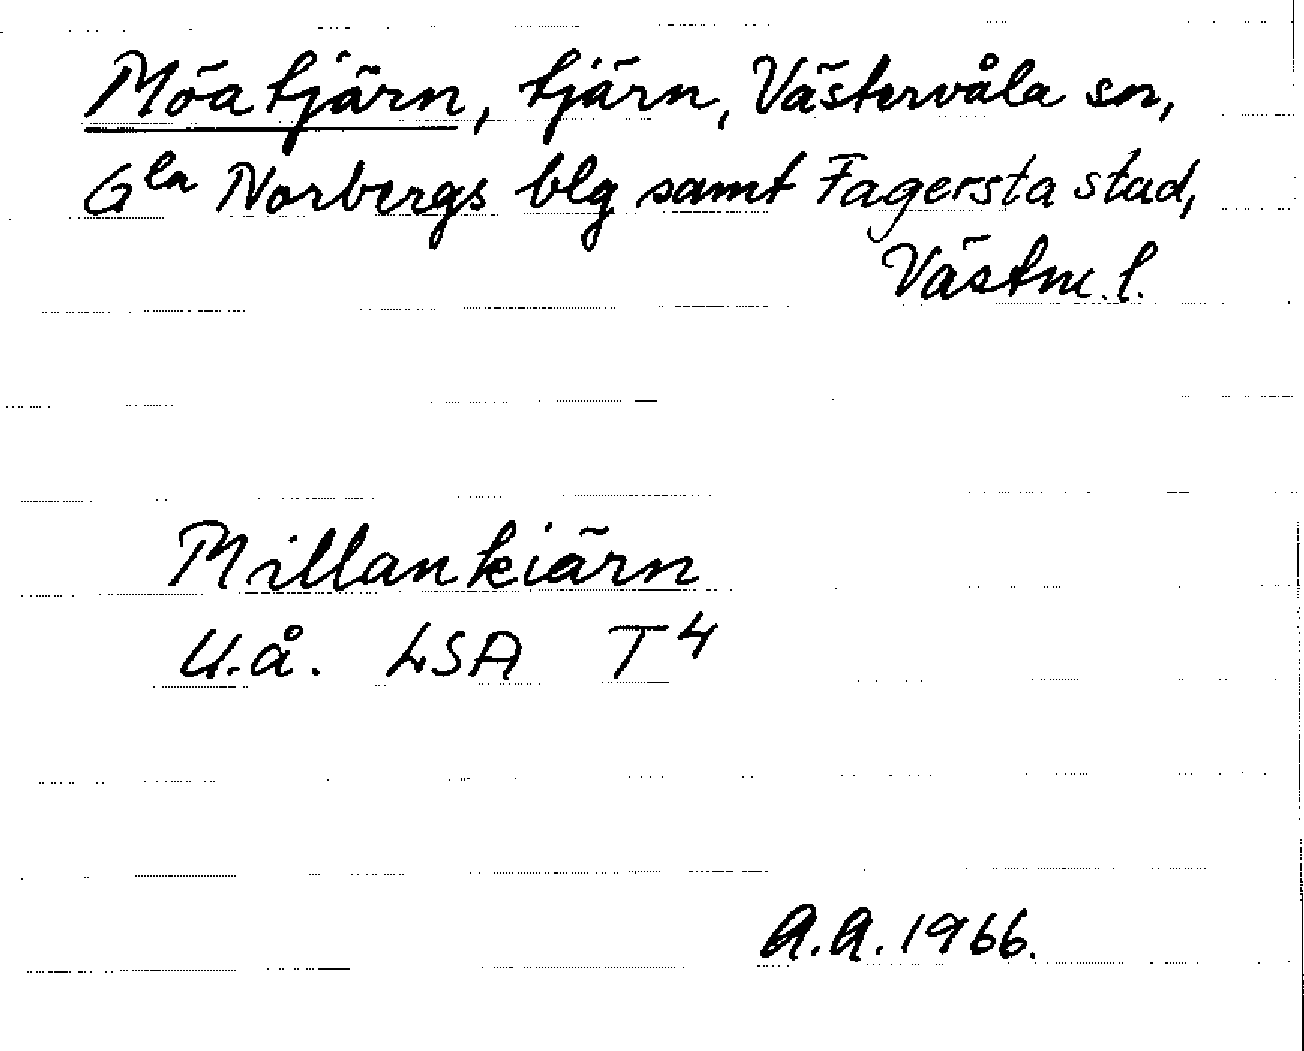 Möatjärn, tjärn, Västervåla sn,
Gla Norbergs blg samt Fagersta stad,
Västm. l.
Millankiärn
U.å. LSA T4
A.A. 1966.